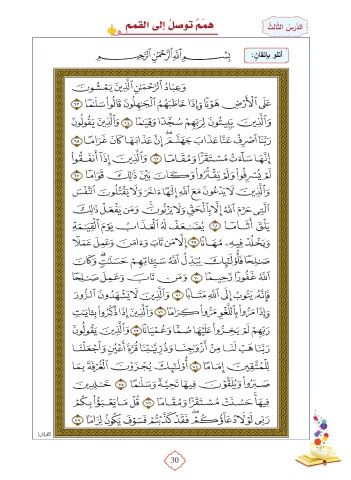 الدرس الثالث
هممٌ توصلُ إلى القمم
أتلو بإتقان:
بِسْمِ ٱللَّهِ ٱلرَّحْمَٰنِ ٱلرَّحِيمِ
وَعِبَادُ ٱلرَّحْمَٰنِ ٱلَّذِينَ يَمْشُونَ
عَلَى ٱلْأَرْضِ هَوْنًا وَإِذَا خَاطَبَهُمُ ٱلْجَٰهِلُونَ قَالُوا۟ سَلَٰمًا ٦٣
وَٱلَّذِينَ يَبِيتُونَ لِرَبِّهِمْ سُجَّدًا وَقِيَٰمًا ٦٤ وَٱلَّذِينَ يَقُولُونَ
رَبَّنَا ٱصْرِفْ عَنَّا عَذَابَ جَهَنَّمَ ۖ إِنَّ عَذَابَهَا كَانَ غَرَامًا ٦٥
إِنَّهَا سَآءَتْ مُسْتَقَرًّا وَمُقَامًا ٦٦ وَٱلَّذِينَ إِذَآ أَنفَقُوا۟
لَمْ يُسْرِفُوا۟ وَلَمْ يَقْتُرُوا۟ وَكَانَ بَيْنَ ذَٰلِكَ قَوَامًا ٦٧
وَٱلَّذِينَ لَا يَدْعُونَ مَعَ ٱللَّهِ إِلَٰهًا ءَاخَرَ وَلَا يَقْتُلُونَ ٱلنَّفْسَ
ٱلَّتِى حَرَّمَ ٱللَّهُ إِلَّا بِٱلْحَقِّ وَلَا يَزْنُونَ ۚ وَمَن يَفْعَلْ ذَٰلِكَ
يَلْقَ أَثَامًا ٦٨ يُضَٰعَفْ لَهُ ٱلْعَذَابُ يَوْمَ ٱلْقِيَٰمَةِ
وَيَخْلُدْ فِيهِۦ مُهَانًا ٦٩ إِلَّا مَن تَابَ وَءَامَنَ وَعَمِلَ عَمَلًا
صَٰلِحًا فَأُو۟لَٰٓئِكَ يُبَدِّلُ ٱللَّهُ سَيِّـَٔاتِهِمْ حَسَنَٰتٍ ۗ وَكَانَ
ٱللَّهُ غَفُورًا رَّحِيمًا ٧٠ وَمَن تَابَ وَعَمِلَ صَٰلِحًا
فَإِنَّهُۥ يَتُوبُ إِلَى ٱللَّهِ مَتَابًا ٧١ وَٱلَّذِينَ لَا يَشْهَدُونَ ٱلزُّورَ
وَإِذَا مَرُّوا۟ بِٱللَّغْوِ مَرُّوا۟ كِرَامًا ٧٢ وَٱلَّذِينَ إِذَا ذُكِّرُوا۟ بِـَٔايَٰتِ
رَبِّهِمْ لَمْ يَخِرُّوا۟ عَلَيْهَا صُمًّا وَعُمْيَانًا ٧٣ وَٱلَّذِينَ يَقُولُونَ
رَبَّنَا هَبْ لَنَا مِنْ أَزْوَٰجِنَا وَذُرِّيَّٰتِنَا قُرَّةَ أَعْيُنٍ وَٱجْعَلْنَا
لِلْمُتَّقِينَ إِمَامًا ٧٤ أُو۟لَٰٓئِكَ يُجْزَوْنَ ٱلْغُرْفَةَ بِمَا
صَبَرُوا۟ وَيُلَقَّوْنَ فِيهَا تَحِيَّةً وَسَلَٰمًا ٧٥ خَٰلِدِينَ
فِيهَا ۚ حَسُنَتْ مُسْتَقَرًّا وَمُقَامًا ٧٦ قُلْ مَا يَعْبَؤُا۟ بِكُمْ
رَبِّى لَوْلَا دُعَآؤُكُمْ ۖ فَقَدْ كَذَّبْتُمْ فَسَوْفَ يَكُونُ لِزَامًۢا ٧٧
[الفرقان]
30